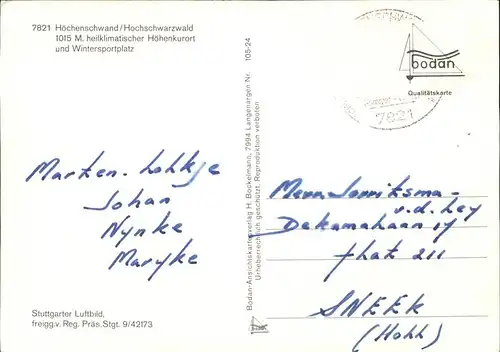 7821 Höchenschwand/Hochschwarzwald
1015 M. heilklimatischer Höhenkurort
und Wintersportplatz
Marten. Lohkje
Johan
Nynke
Maryke
Stuttgarter Luftbild,
freigg.v. Reg. Präs.Stgt. 9/42173
Bodan-Ansichtskartenverlag H. Bockelmann, 7994 Langenargen Nr. 105-24
Urheberrechtlich geschützt. Reproduktion verboten
bodan
Qualitätskarte
7821
Mevr. Jorritsma -
v.d. Ley
Dekamahaan
flat 211
SNEEK
(Holl)